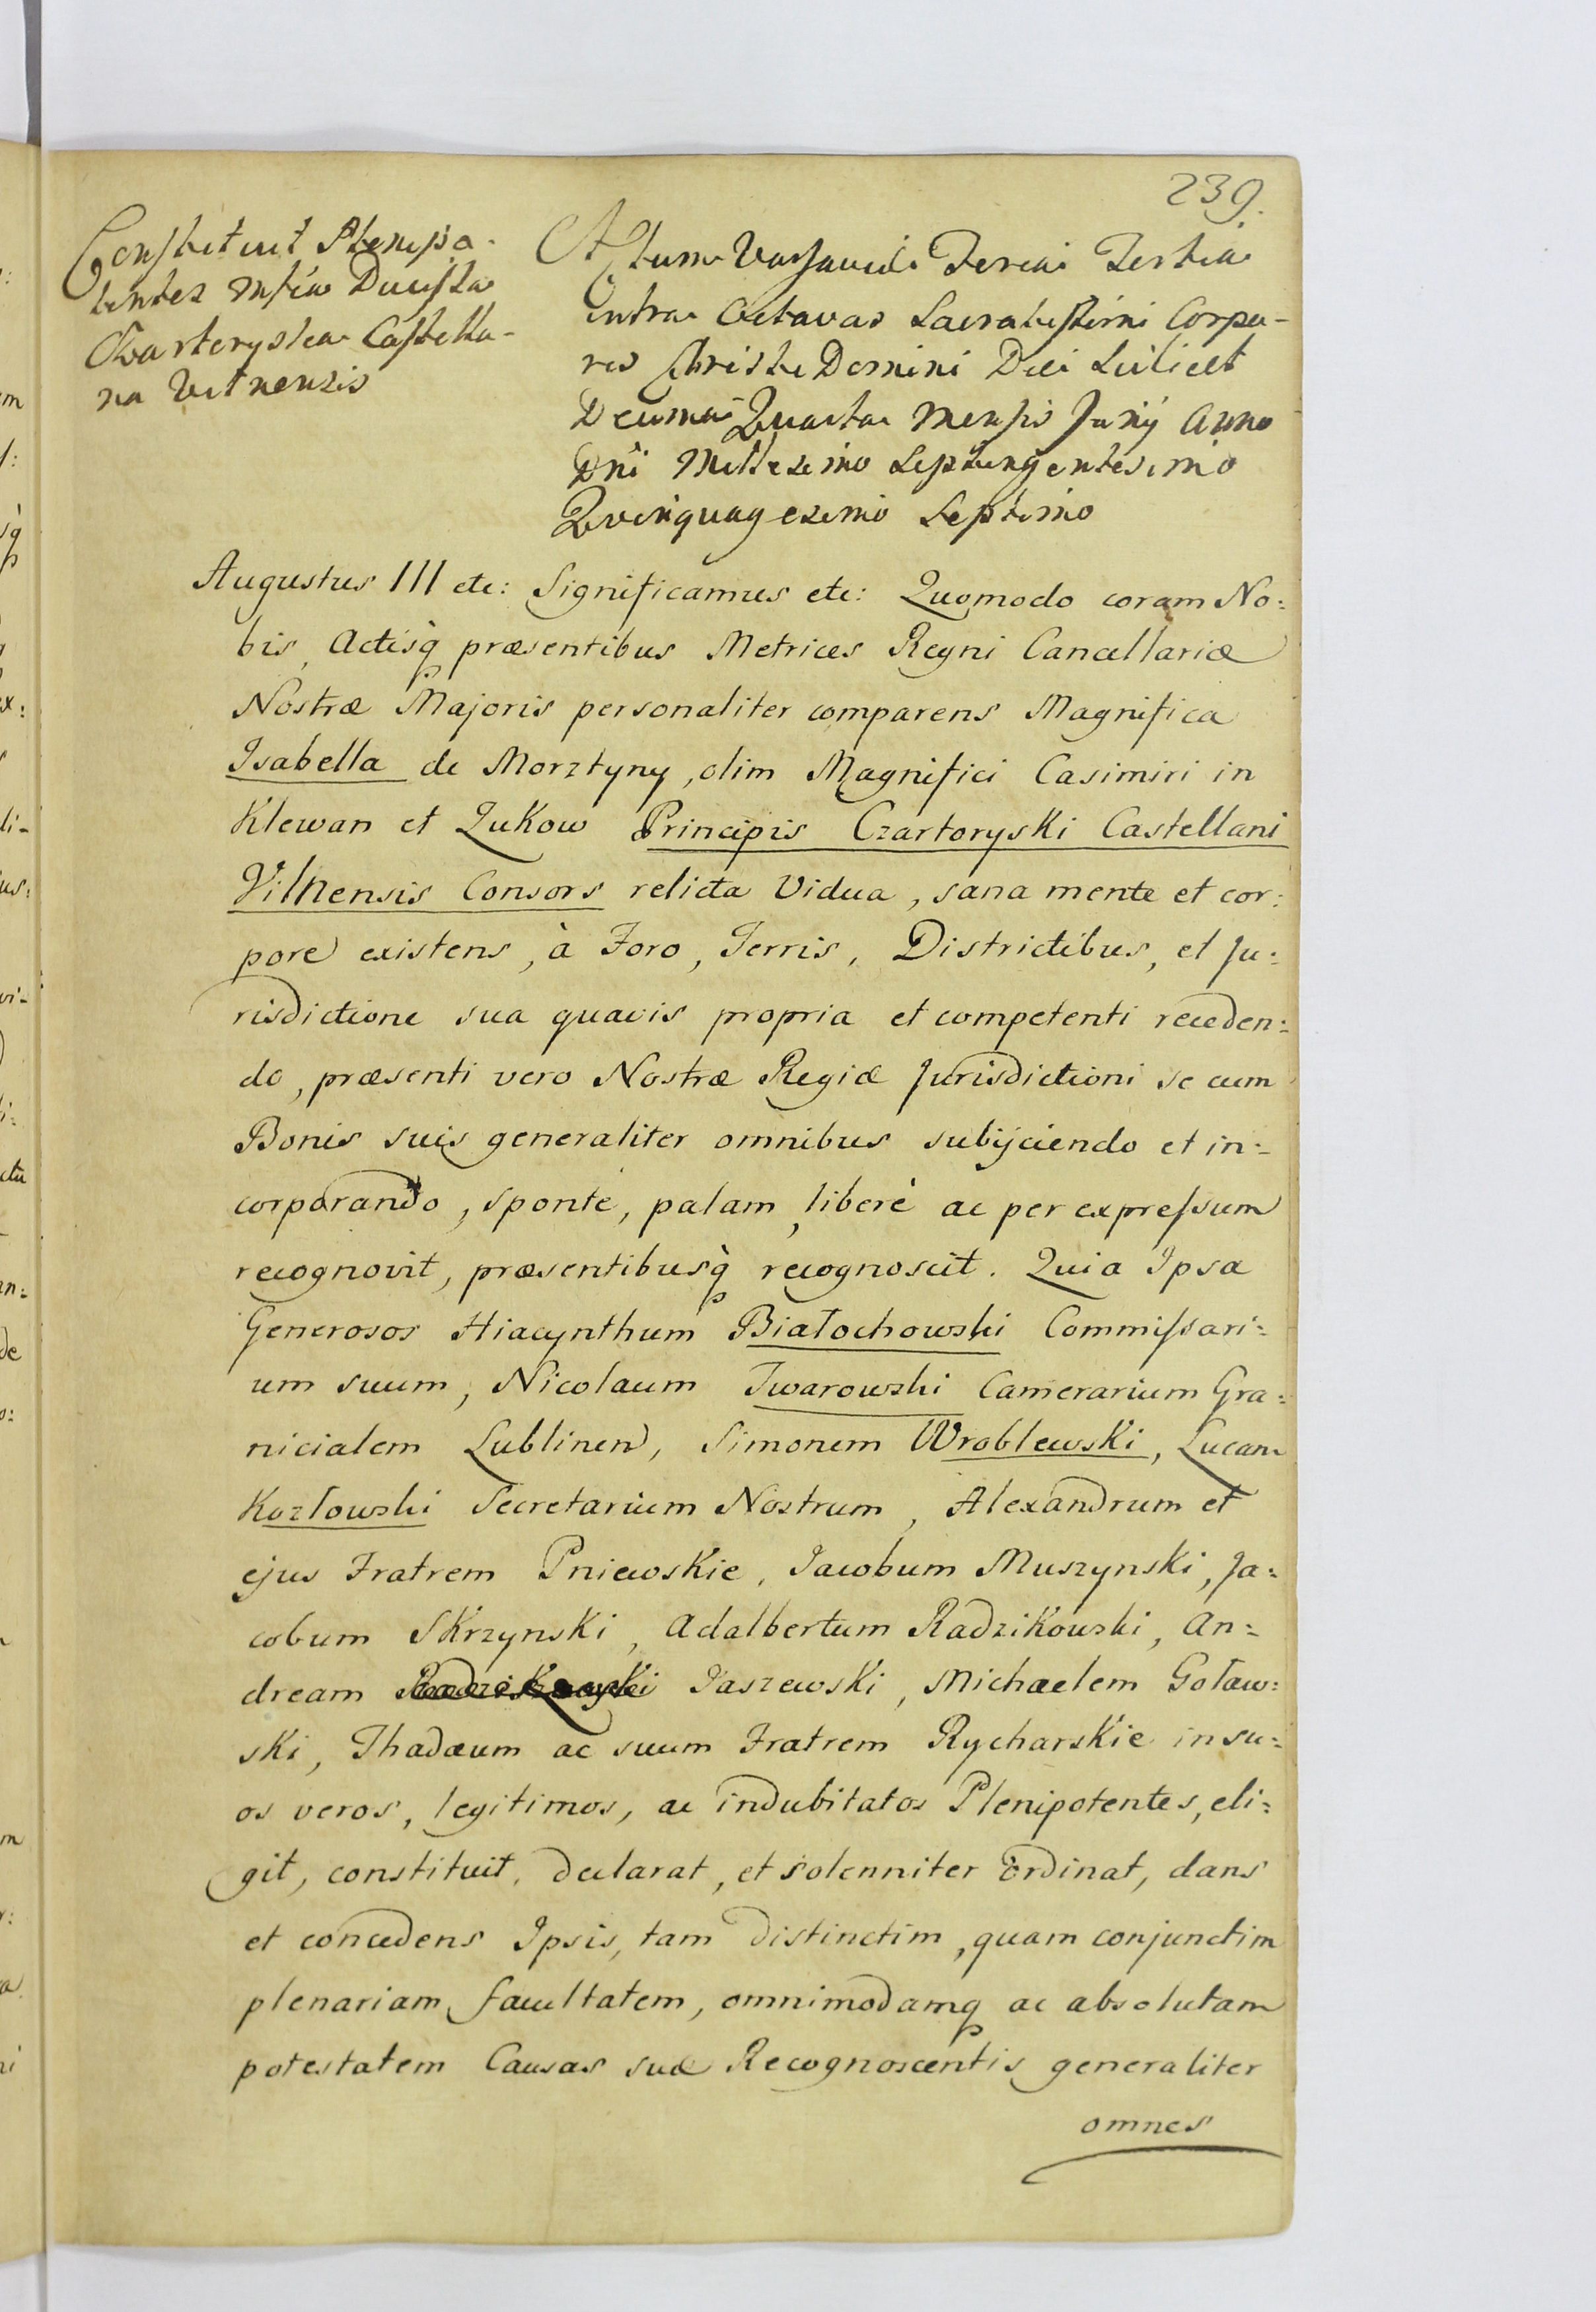 239.
Constituit Plenipo-
tentes Mfica Ducissa
Czartoryska Castella-
na Vilnensis
Actum Varsaviæ Feria Tertia
intra Octavas Sacratissimi Corpo-
ris Christi Domini Die Scilicet
Decima Quarta Mensis Junij Anno
Dni Millesimo Septingentesimo
Quinquagesimo Septimo
Augustus III etc: Significamus etc: Quomodo coram No:
bis, Actisq̀ præsentibus Metrices Regni Cancellariæ
Nostræ Majoris personaliter comparens Magnifica
Isabella de Morztyny, olim Magnifici Casimiri in
Klewan et Zukow Principis Czartoryski Castellani
Vilnensis Consors relicta Vidua, sana mente et cor:
pore existens, à Foro, Terris, Districtibus, et Ju:
risdictione sua quavis propria et competenti receden:
do, præsenti vero Nostræ Regiæ Jurisdictioni se cum
Bonis suis generaliter omnibus subijciendo et in:
corporando, sponte, palam, liberè ac per expressum
recognovit, præsentibusq̀ recognoscit. Quia Ipsa
Generosos Hiacynthum Białochowski Commissari:
um suum, Nicolaum Twarowski Camerarium Gra:
nicialem Lublinen, Simonem Wroblewski, Lucam
Kozłowski Secretarium Nostrum, Alexandrum et
ejus Fratrem Pniewskie, Jacobum Muszynski, Ja:
cobum Skrzynski, Adalbertum Radzikowski, An:
dream Jaszewski, Michaelem Goław:
ski, Thadæum ac suum Fratrem Rycharskie in su:
os veros, legitimos, ac indubitatos Plenipotentes, eli:
git, constituit, declarat, et solenniter ordinat, dans
et concedens Ipsis, tam distinctim, quam conjunctim
plenariam facultatem, omnimodamq ac absolutam
potestatem Causas suæ Recognoscentis generaliter
omnes